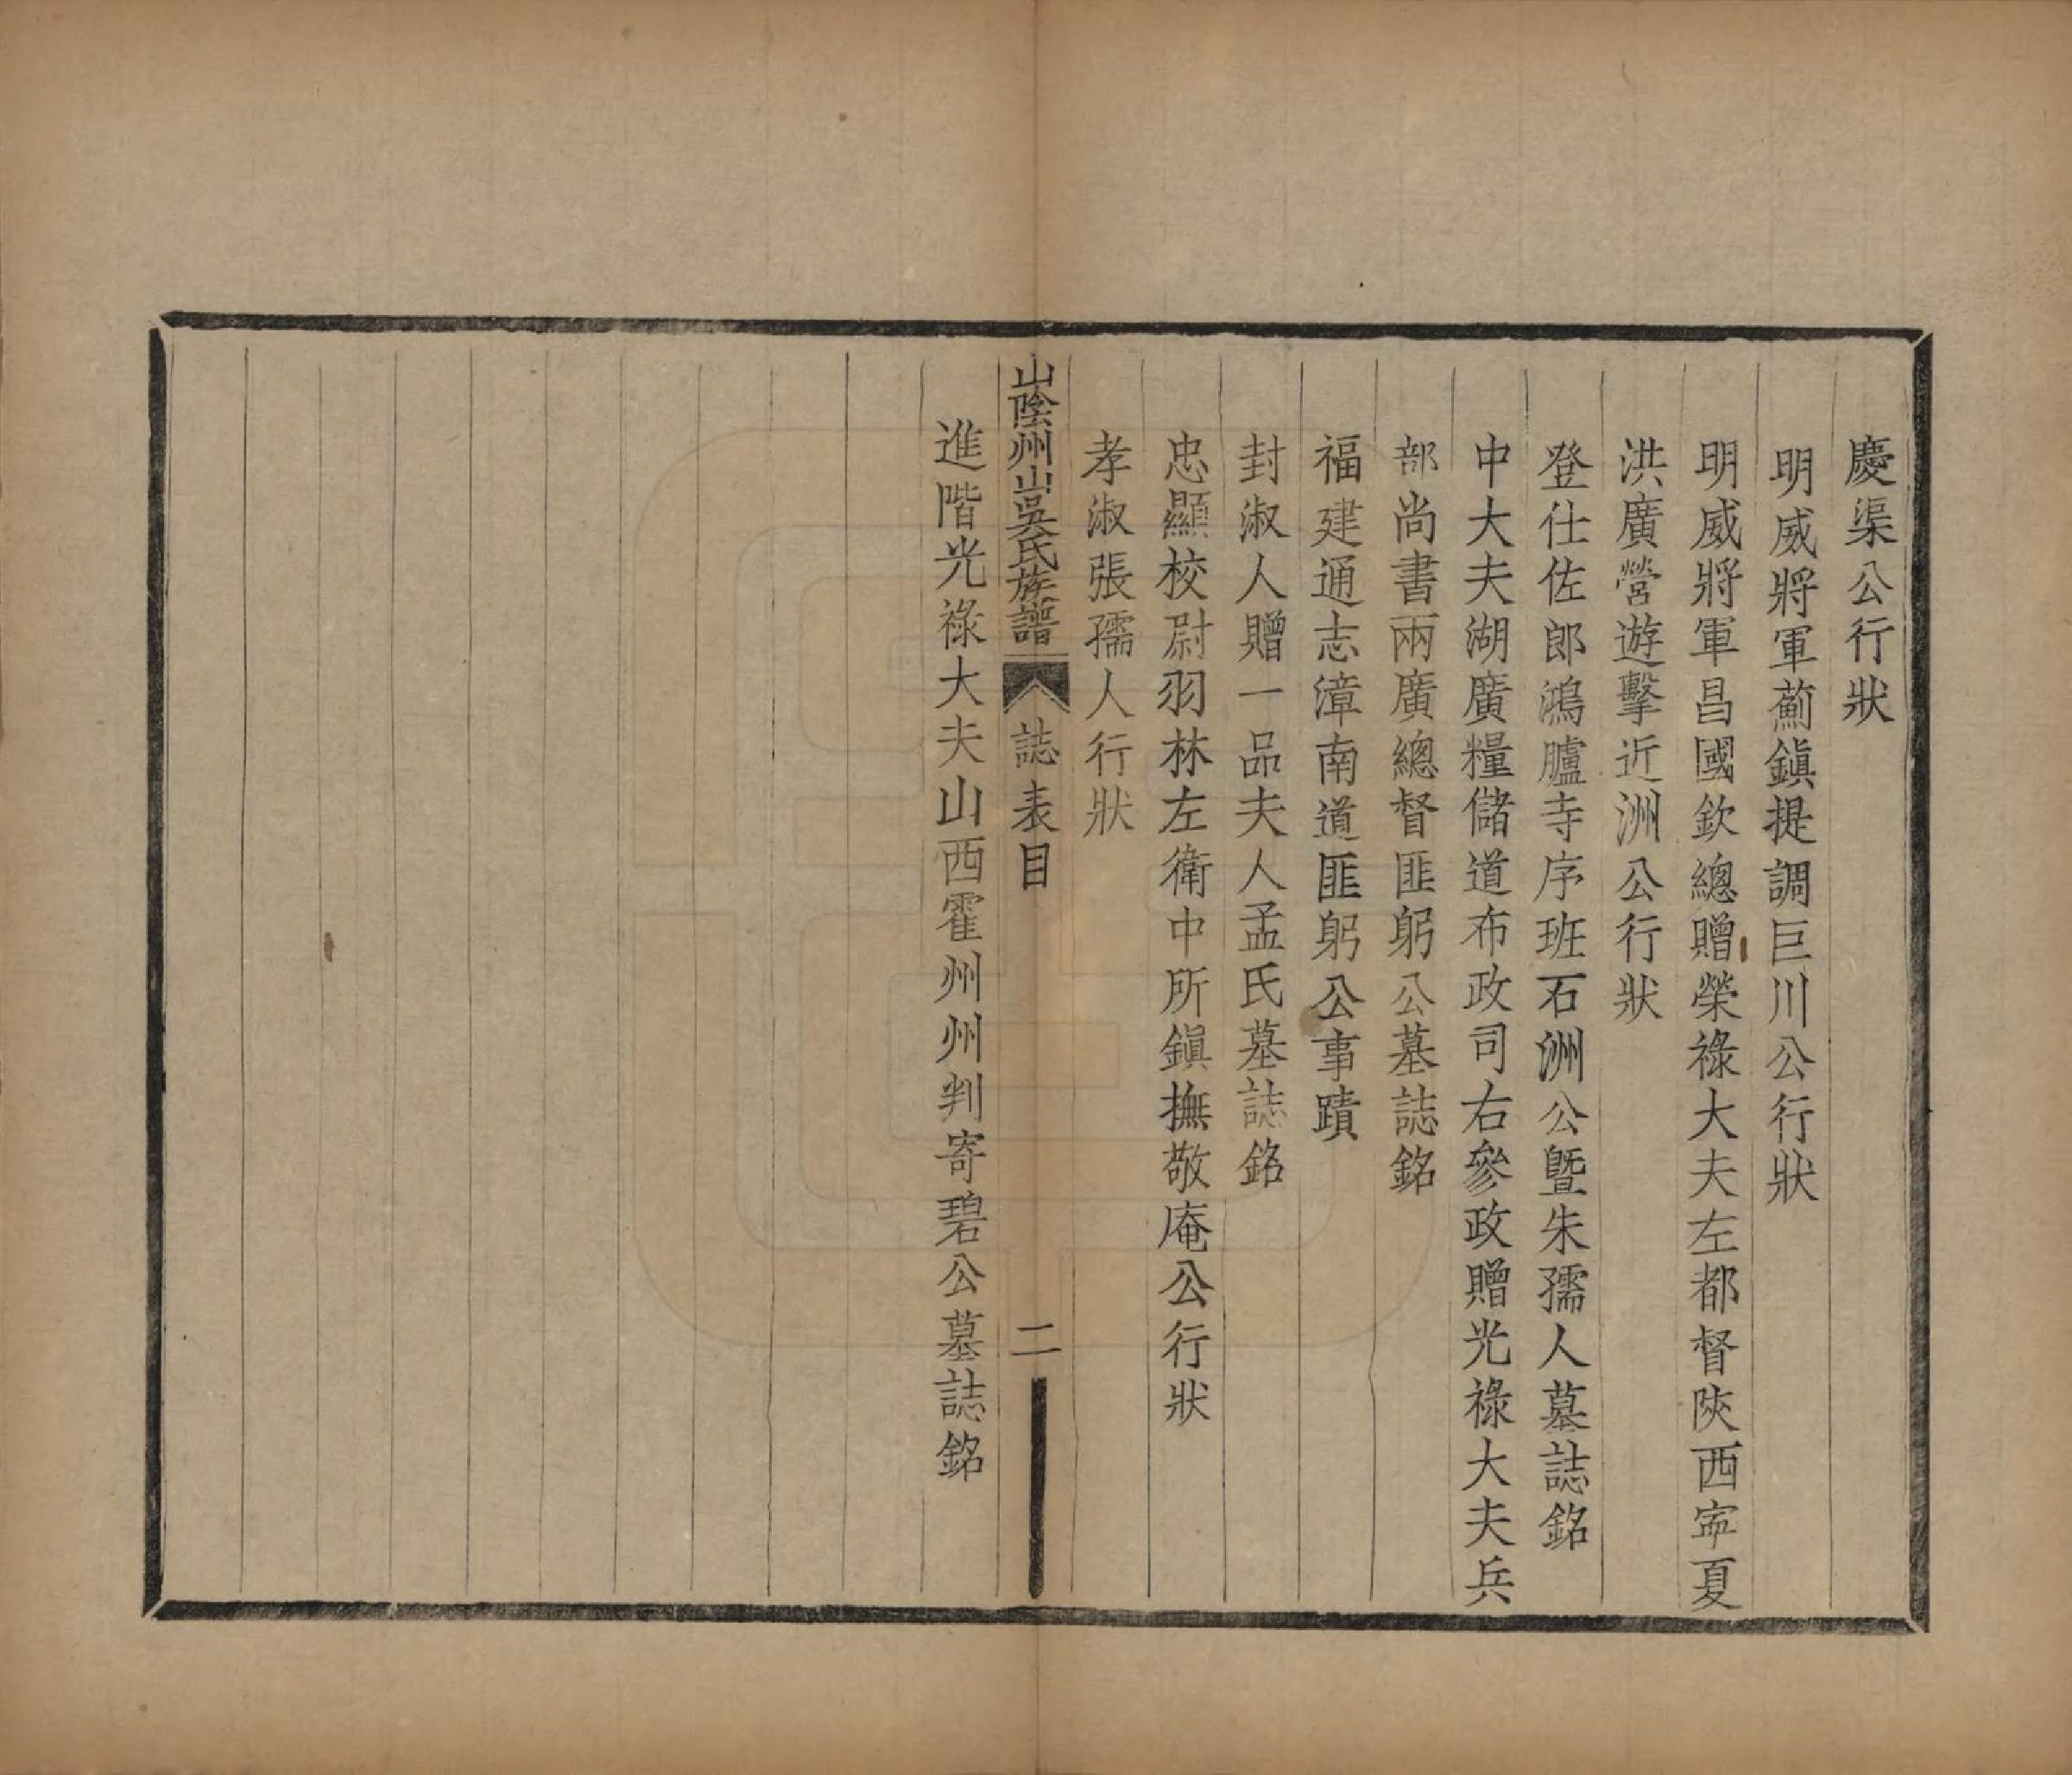 慶渠公行狀
明威將軍薊鎮提調巨川公行狀
明威將軍昌國欽總贈榮祿大夫左都督陜西寍夏
洪廣營遊擊近洲公行狀
登仕佐郎鴻臚寺序班石洲公暨朱孺人墓誌銘
中大夫湖廣糧儲道布政司右參政贈光祿大夫兵
部尚書兩廣總督匪躬公墓誌銘
福建通志漳南道匪躬公事蹟
封淑人贈一品夫人孟氏墓誌銘
忠顯校尉羽林左衛中所鎮撫敬庵公行狀
孝淑張孺人行狀
山陰州山吳氏族譜 誌表目 二
進階光祿大夫山西霍州州判寄碧公墓誌銘